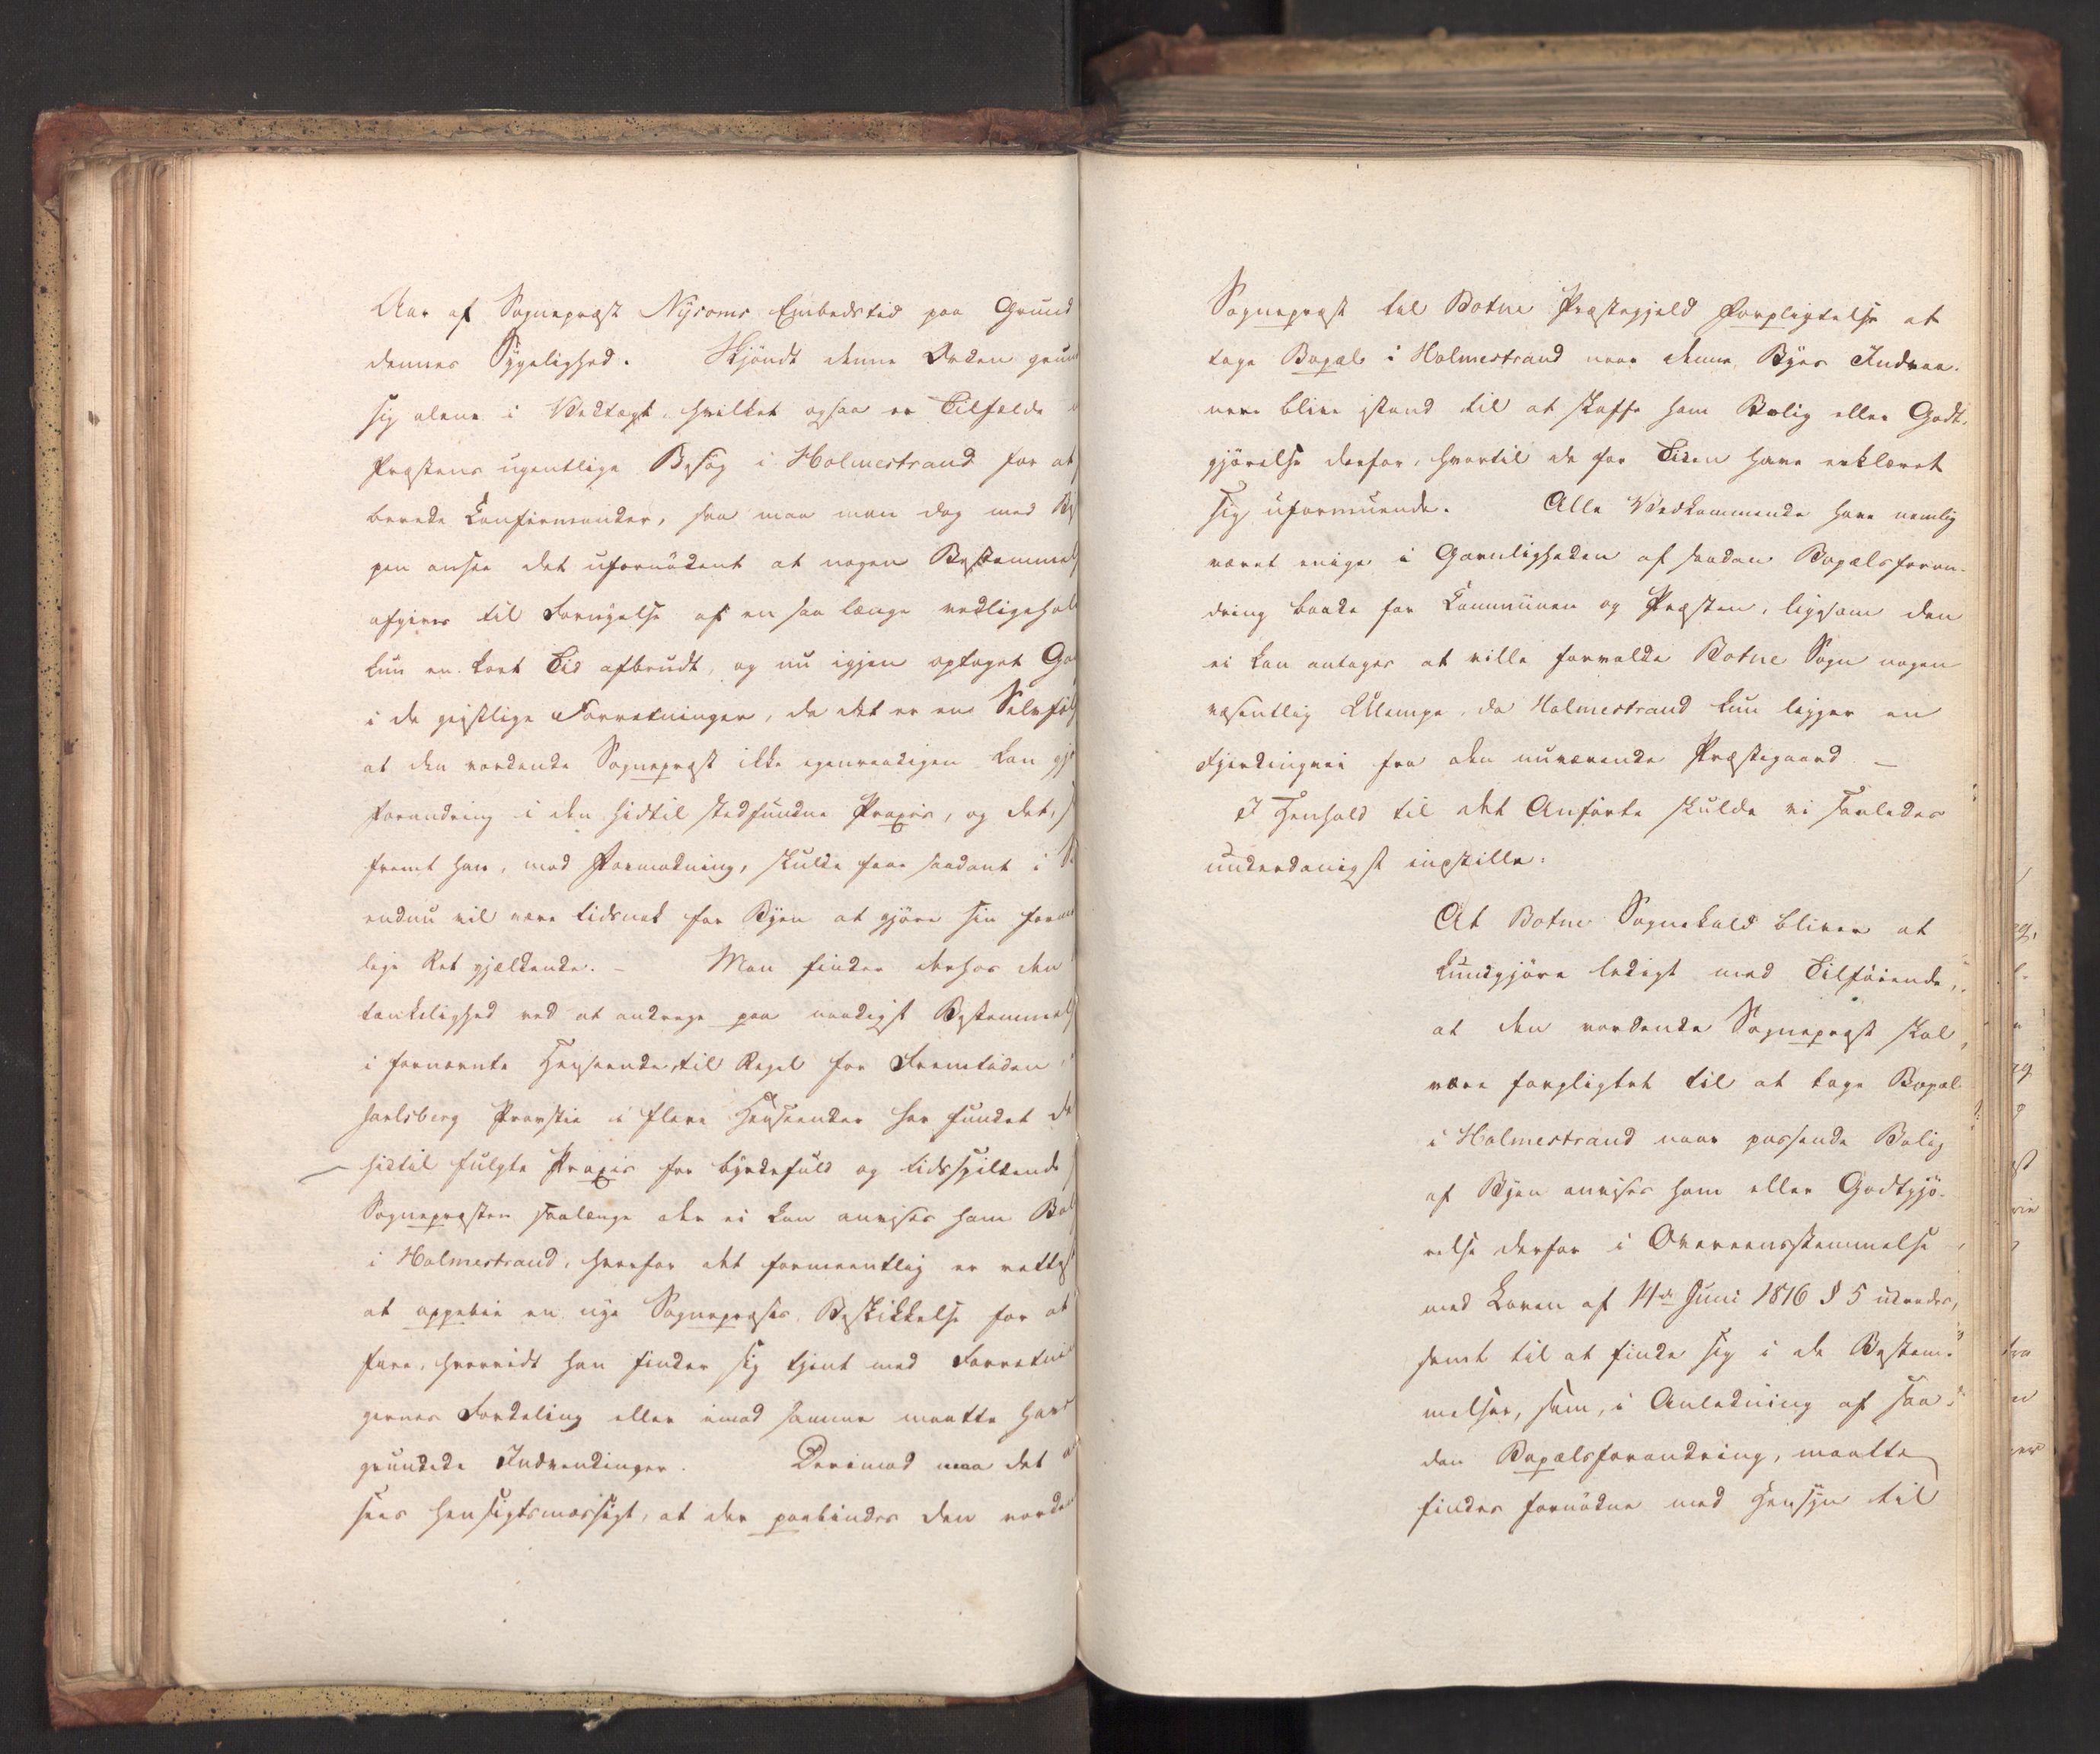 Aar af Sognepræst Nysoms Embedstid paa Grund
dennes Sygelighed. Skjöndt denne Orden grun
sig alene i Vedtægt, hvilket ogsaa er Tilfælde
Præstens ugentlige Besög i Holmestrand for at
berede Confirmander, saa maa man dog med Bis
pen ansee det ufornödent at nogen Bestemmels
afgives til Fornyelse af en saa længe vedligehol
kun en kort Tid afbrudt, og nu igjen optaget
i de geistlige Forretninger, da det er en Selvföl
at den vordende Sognepræst ikke egenraadigen kan gjö
Forandring i den hidtil stedfundne Praxis, og det,
fremt han, mod Formodning, skulde have saadant i
endnu vil være tidsnok for Byen at gjöre sin
lige Ret gjældende. – Man finder derhos den
tænkelighed ved at andrage paa naadigst Bestemmels
i fornævnte Henseende, til Regel for Fremtiden,
harlsberg Provstie i flere Henseender har fundet
hidtil fulgte Praxis for byrdefuld og tidsspildende
Sognepræsten saalænge der ei kan anvises ham Bol
i Holmestrand, hvorfor det formeentlig er rettest
at oppebie en nye Sognepræsts Beskikkelse for at
fare, hvorvidt han finder sig tjent med Forretnin
gernes Fordeling eller imod samme maatte have
grundede Indvendinger. Derimod maa det
sees hensigtsmæssigt, at der paabindes den vorden
Sognepræst til Botne Præstegjeld Forpligtelse at
tage Bopæl i Holmestrand naar denne Byes Indvaa-
nere blive istand til at skaffe ham Bolig eller Godt-
gjörelse derfor, hvortil de for Tiden have erklæret
sig uformuende. Alle Vedkommende have nemlig
været enige i Gavnligheden af saadan Bopælsforan-
dring baade for Communen og Præsten, ligesom den
ei kan antages at ville forvolde Botne Sogn nogen
væsentlig Ulempe, da Holmestrand kun ligger en
Fjerdingvei fra den nuværende Præstegaard. –
I Henhold til det Anförte skulde vi saaledes
underdanigst indstille:
At Botne Sognekald bliver at
kundgjöre ledigt med Tilföiende,
at den vordende Sognepræst skal
være forpligtet til at tage Bopæl
i Holmestrand naar passende Bolig
af Byen anvises ham eller Godtgjö-
relse derfor i Overeensstemmelse
med Loven af 14de Juni 1816 § 5 udredes,
samt til at finde sig i de Bestem-
melser, som, i Anledning af saa-
dan Bopælsforandring, maatte
findes fornödne med Hensyn til